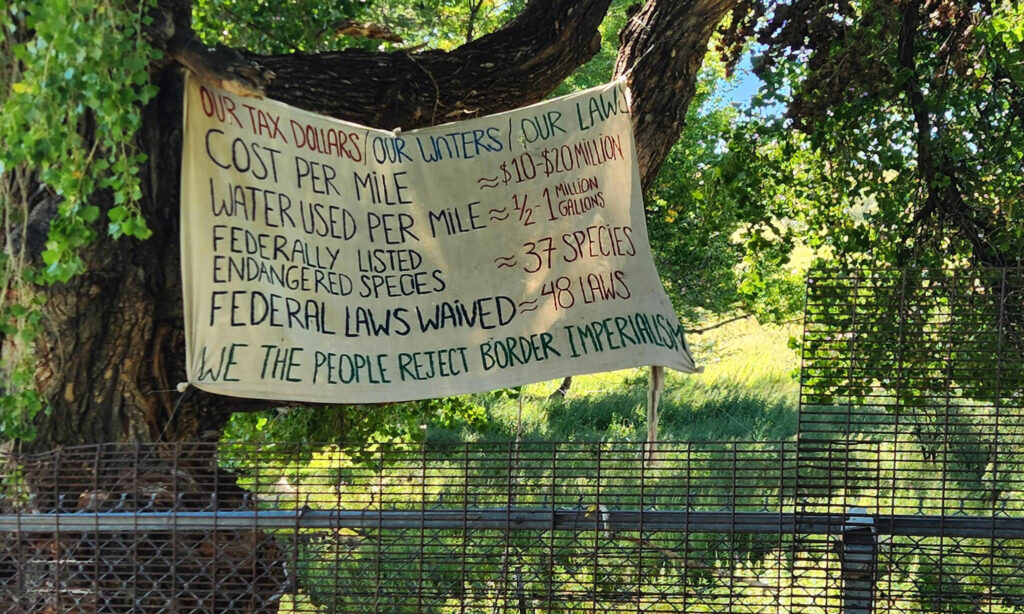 OUR TAX DOLLARS/OUR WATERS/OUR LAWS
COST PER MILE ≈ $10-$20 MILLION
WATER USED PER MILE ≈ 1/2 - 1 MILLION GALLONS
FEDERALLY LISTED
ENDANGERED SPECIES ≈ 37 SPECIES
FEDERAL LAWS WAIVED ≈ 48 LAWS
WE THE PEOPLE REJECT BORDER IMPERIALISM